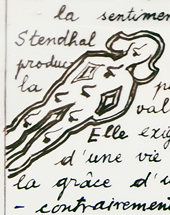 la sentimen
Stendhal
produc
la p
val
Elle exig
d'une vie
la grâce d'u
- contrairement